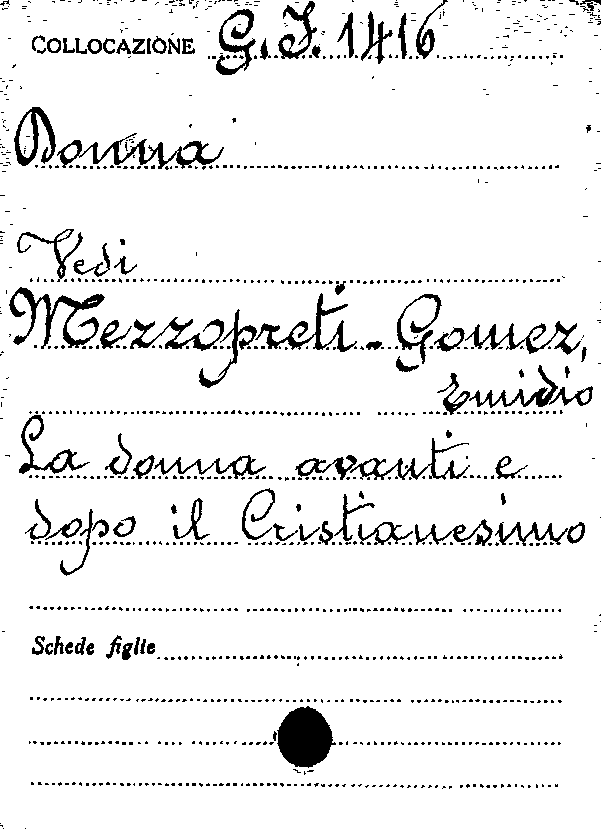 COLLOCAZIONE G. I. 1416
Donna
Vedi
Mezzopreti-Gomez,
Emidio
La donna avanti e
dopo il Cristianesimo
Schede figlie